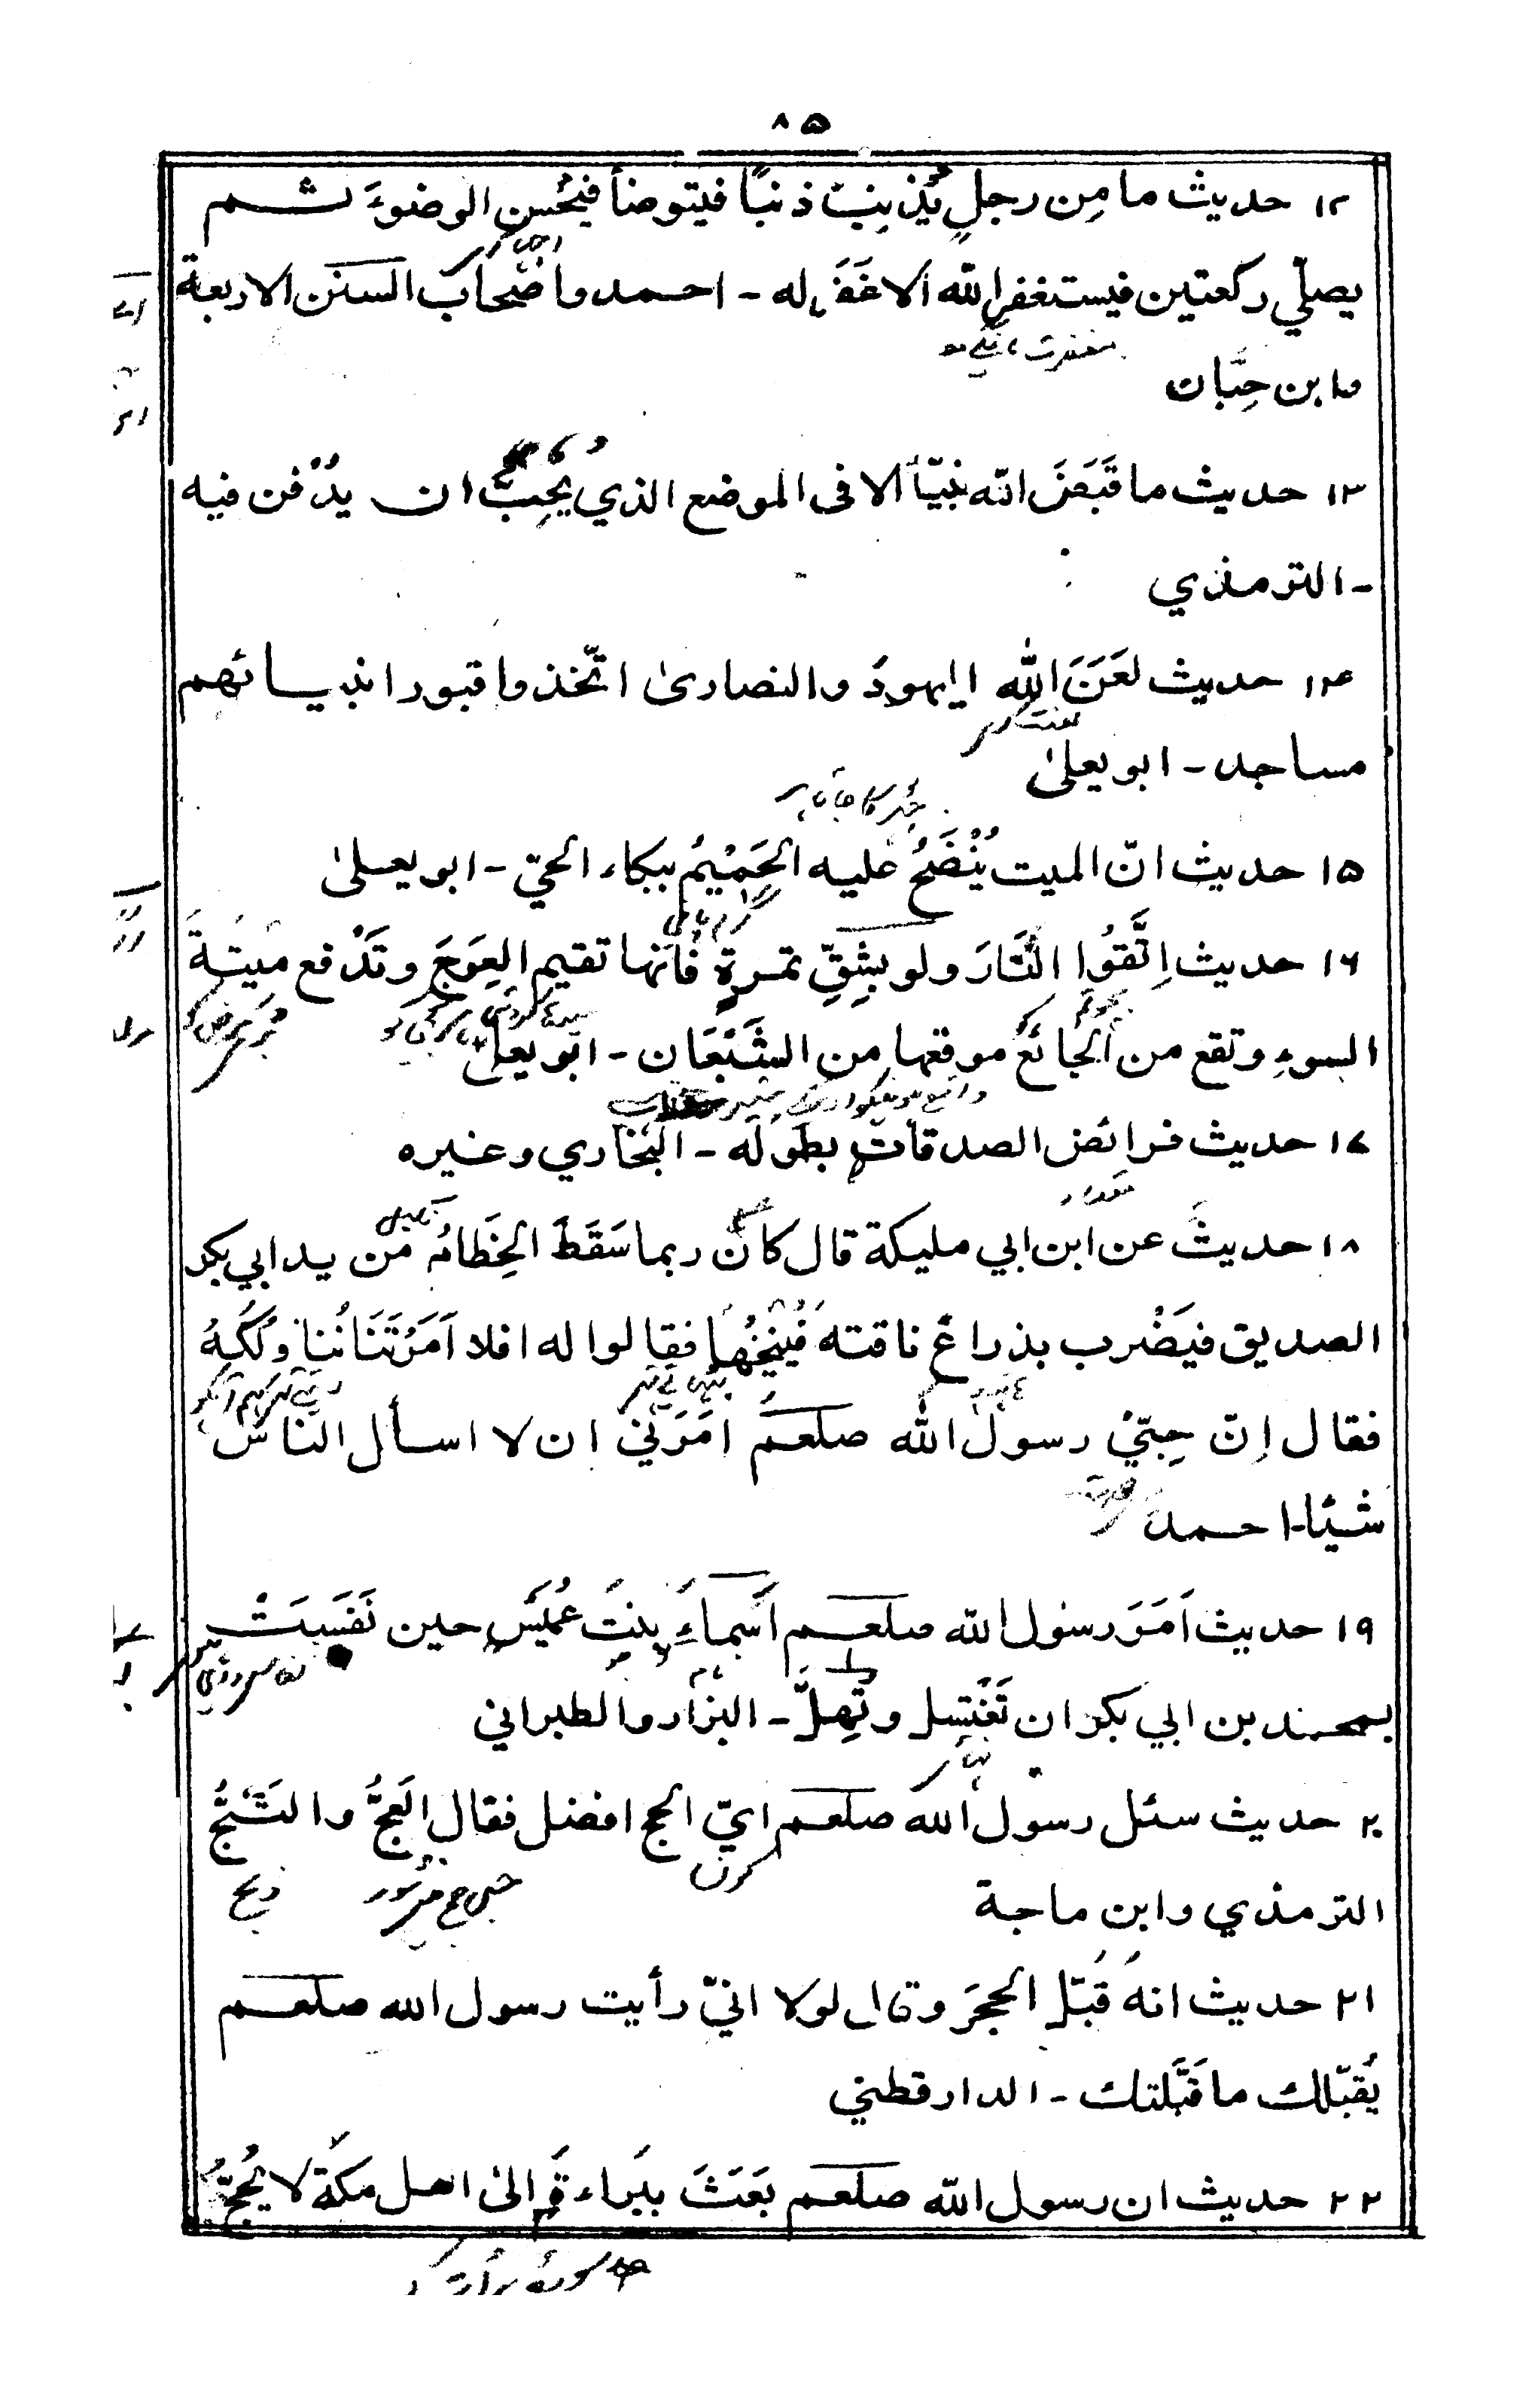 ۸۵
۱۲ حديث ما مِن رجلٍ يُذنِبُ ذنبًا فيتوضأ فيُحسِن الوضوءَ ثم
يصلّي ركعتين فيستغفر اللّٰه الا غَفَرَ له - احمد واصحاب السنن الاربعة
وابن حِبَّان
۱۳ حديث ما قَبَضَ اللّٰه نبيّاً الا فى الموضع الذي يُحِبُّ ان يدْفن فيه
- الترمذي
۱۴ حديث لعَنَ اللّٰه اليهودَ والنصارىٰ اتّخذوا قبور انبيائهم
مساجد - ابو يعلىٰ
۱۵ حديث انّ الميت يُنْضَحُ عليه الحَمِيْمُ ببكاء الحيّ - ابو يعلىٰ
گرم پانی
۱۶ حديث اِتَّقُوا النَّارَ ولو بشِقِّ تمرةٍ فانّها تقيم العِوَجَ وتَدْفع ميتةَ
السوءِ وتقع من الجائع موقعها من الشَّبْعَان - ابو يعلىٰ
۱۷ حديث فرائض الصدقات بطوله - البخاري وغيره
۱۸ حديث عن ابن ابي مليكة قال كان ربما سَقَطَ الخِطَامُ من يد ابي بكر
الصديق فيَضْرب بذراع ناقته فيُنِيخُها فقالوا له افلا اَمَرْتَنَا نُناوِلُكَهُ
فقال اِنّ حِبّيْ رسول اللّٰه صلعم اَمَرَنيْ ان لا اسأل الناس
شيئا - احمد
۱۹ حديث اَمَرَ رسول اللّٰه صلعم اَسماءَ بِنتَ عُمَيْسٍ حين نَفَسِتْ
بمحمد بن ابي بكر ان تَغْتَسِل وتُهِلَّ - البزار والطبراني
۲۰ حديث سئل رسول اللّٰه صلعم ايّ الحج افضل فقال العَجُّ والثَّجُّ
كون
ذبح
الترمذي وابن ماجة
۲۱ حديث انه قَبّل الحجرَ وقال لولا انيّ رأيت رسول اللّٰه صلعم
يُقبّلك ما قَبَّلتك - الدارقطني
۲۲ حديث ان رسول اللّٰه صلعم بَعَثَ ببَراءَة الىٰ اهل مكة لا يُحجُّ